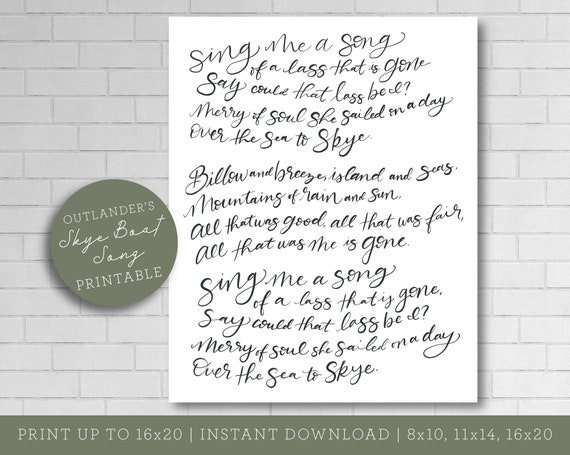 Sing me a song
of a lass that is gone
Say could that lass be I?
Merry of soul she sailed on a day
Over the sea to Skye.
Billow and breeze, island and seas.
Mountains of rain and sun,
All that was good, all that was fair,
All that was me is gone.
Sing me a song
of a lass that is gone,
Say could that lass be I?
Merry of soul she sailed on a day
Over the sea to Skye.
OUTLANDER'S
Skye Boat
Song
PRINTABLE
PRINT UP TO 16x20 | INSTANT DOWNLOAD | 8x10, 11x14, 16x20